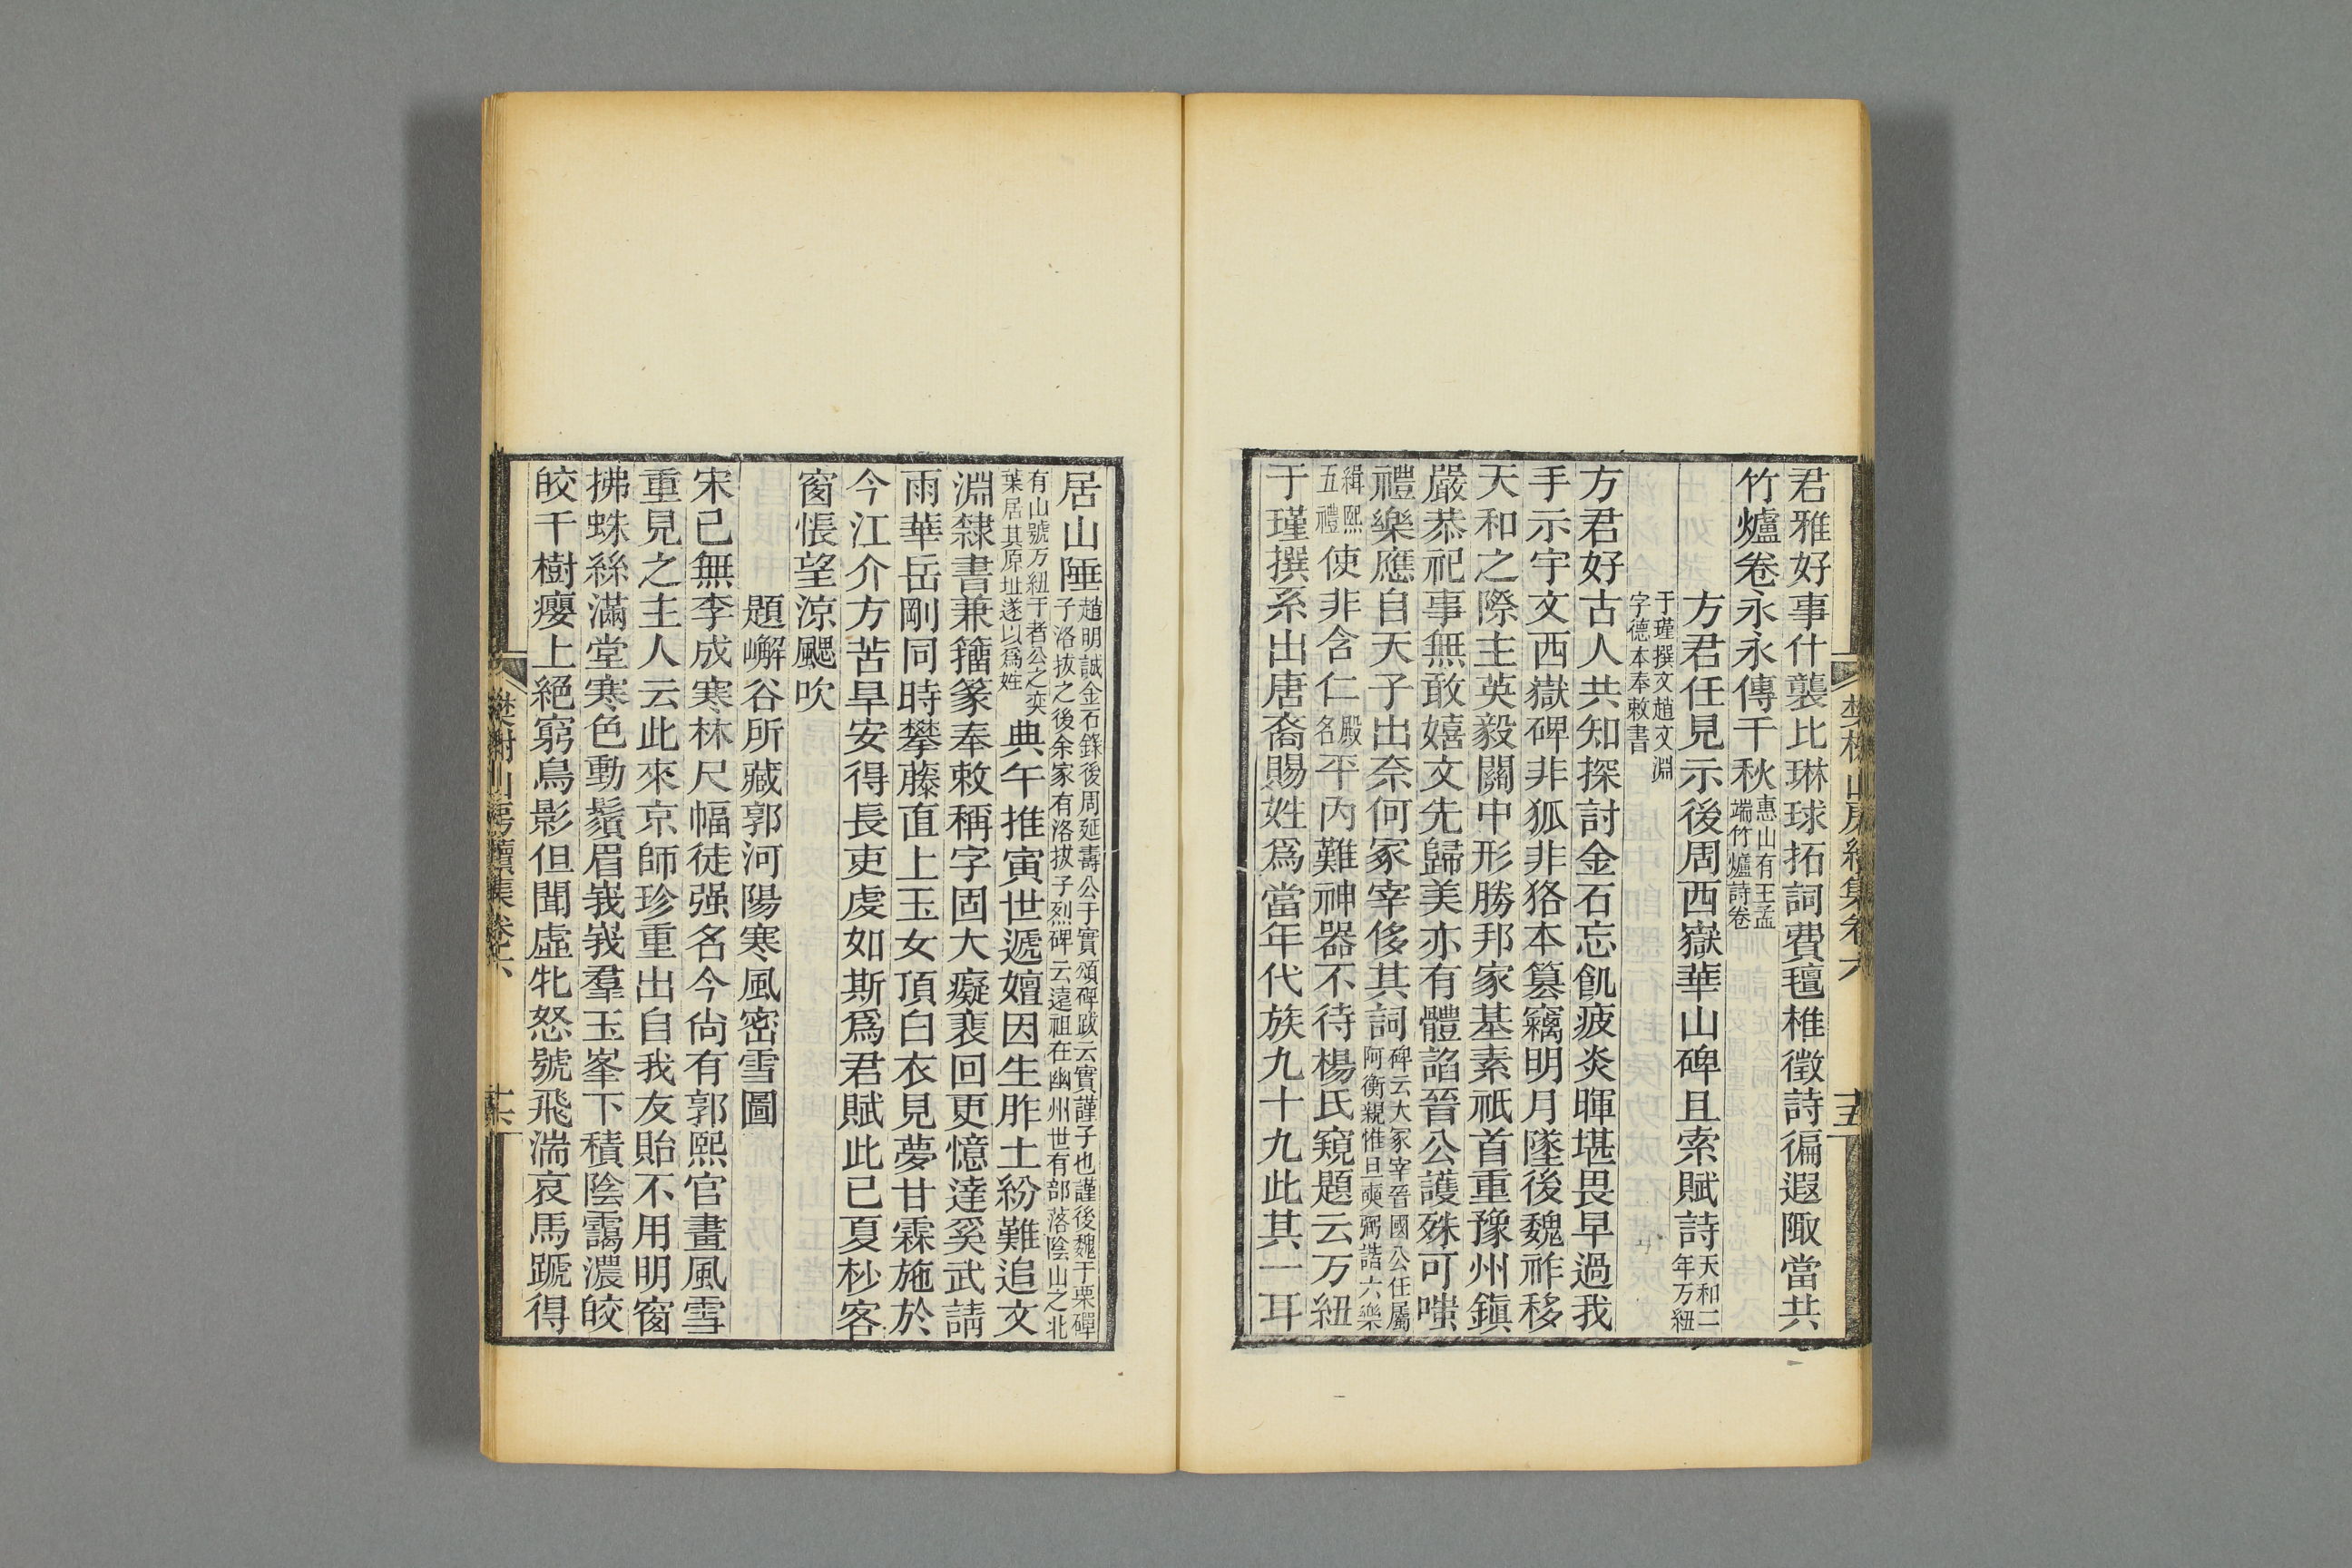 君雅好事什襲比琳球拓詞費氊椎徵詩徧遐陬當共
竹爐卷永永傳千秋惠山有王孟端竹爐詩卷
方君任見示後周西嶽華山碑且索賦詩天和二年万紐
于瑾撰文趙文淵字德本奉敕書
方君好古人共知探討金石忘飢疲炎暉堪畏早過我
手示宇文西嶽碑非狐非狢本篡竊明月墜後魏祚移
天和之際主英毅關中形勝邦家基素祇首重豫州鎮
嚴恭祀事無敢嬉文先歸美亦有體諂晉公護殊可嗤
禮樂應自天子出奈何冢宰侈其詞碑云大冢宰晉國公任屬阿衡親惟旦奭弼諧六樂
緝熙五禮使非含仁殿名平內難神器不待楊氏窺題云万紐
于瑾撰系出唐裔賜姓為當年代族九十九此其一耳
樊榭山房續集卷六
十五
居山陲趙明誠金石錄後周延壽公于實頌碑跋云實謹子也謹後魏于栗磾子洛拔之後余家有洛拔子烈碑云遠祖在幽州世有部落陰山之北
有山號万紐于者公之奕葉居其原址遂以為姓典午推寅世遞嬗因生胙土紛難追文
淵隸書兼籀篆奉敕稱字固大癡裵回更憶達奚武請
雨華岳剛同時攀藤直上玉女頂白衣見夢甘霖施於
今江介方苦旱安得長吏虔如斯為君賦此已夏杪客
窗悵望涼颸吹
題嶰谷所藏郭河陽寒風密雪圖
宋已無李成寒林尺幅徒强名今尚有郭熙官畫風雪
重見之主人云此來京師珍重出自我友貽不用明窗
拂蛛絲滿堂寒色動鬚眉峩峩羣玉峯下積陰靄濃皎
皎千樹癭上絕窮鳥影但聞虛牝怒號飛湍哀馬蹏得
樊榭山房續集卷六
十六